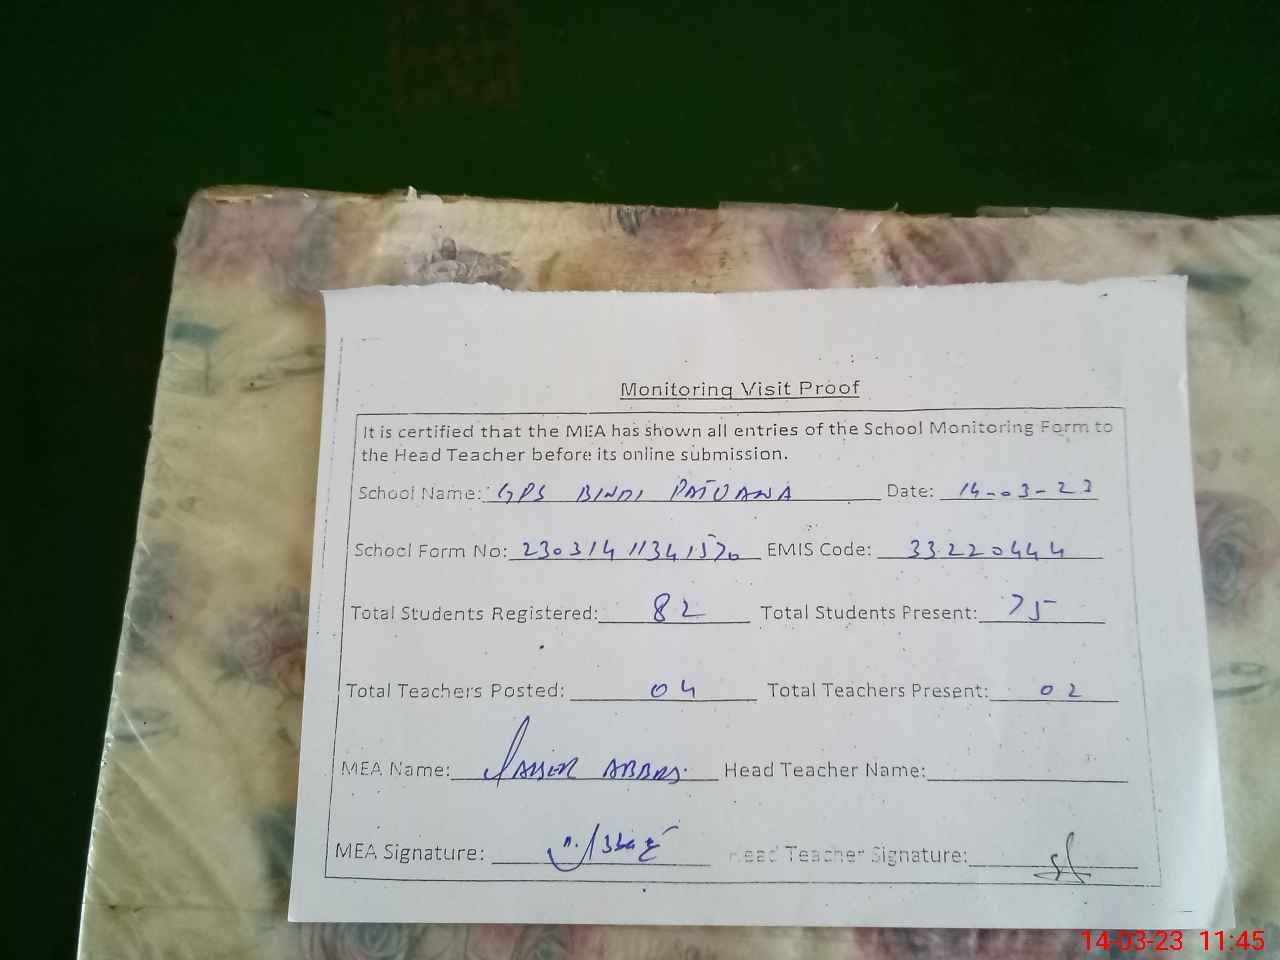 Monitoring Visit Proof
It is certified that the MEA has shown all entries of the School Monitoring Form to
the Head Teacher before its online submission.
School Name: GPS BINDI PATOANA Date: 14-03-23
School Form No: 23031411341570 EMIS Code: 33220444
Total Students Registered: 82 Total Students Present: 75
Total Teachers Posted: 04 Total Teachers Present: 02
MEA Name: YASSER ABBAS. Head Teacher Name:
MEA Signature: Head Teacher Signature:
14-03-23 11:45